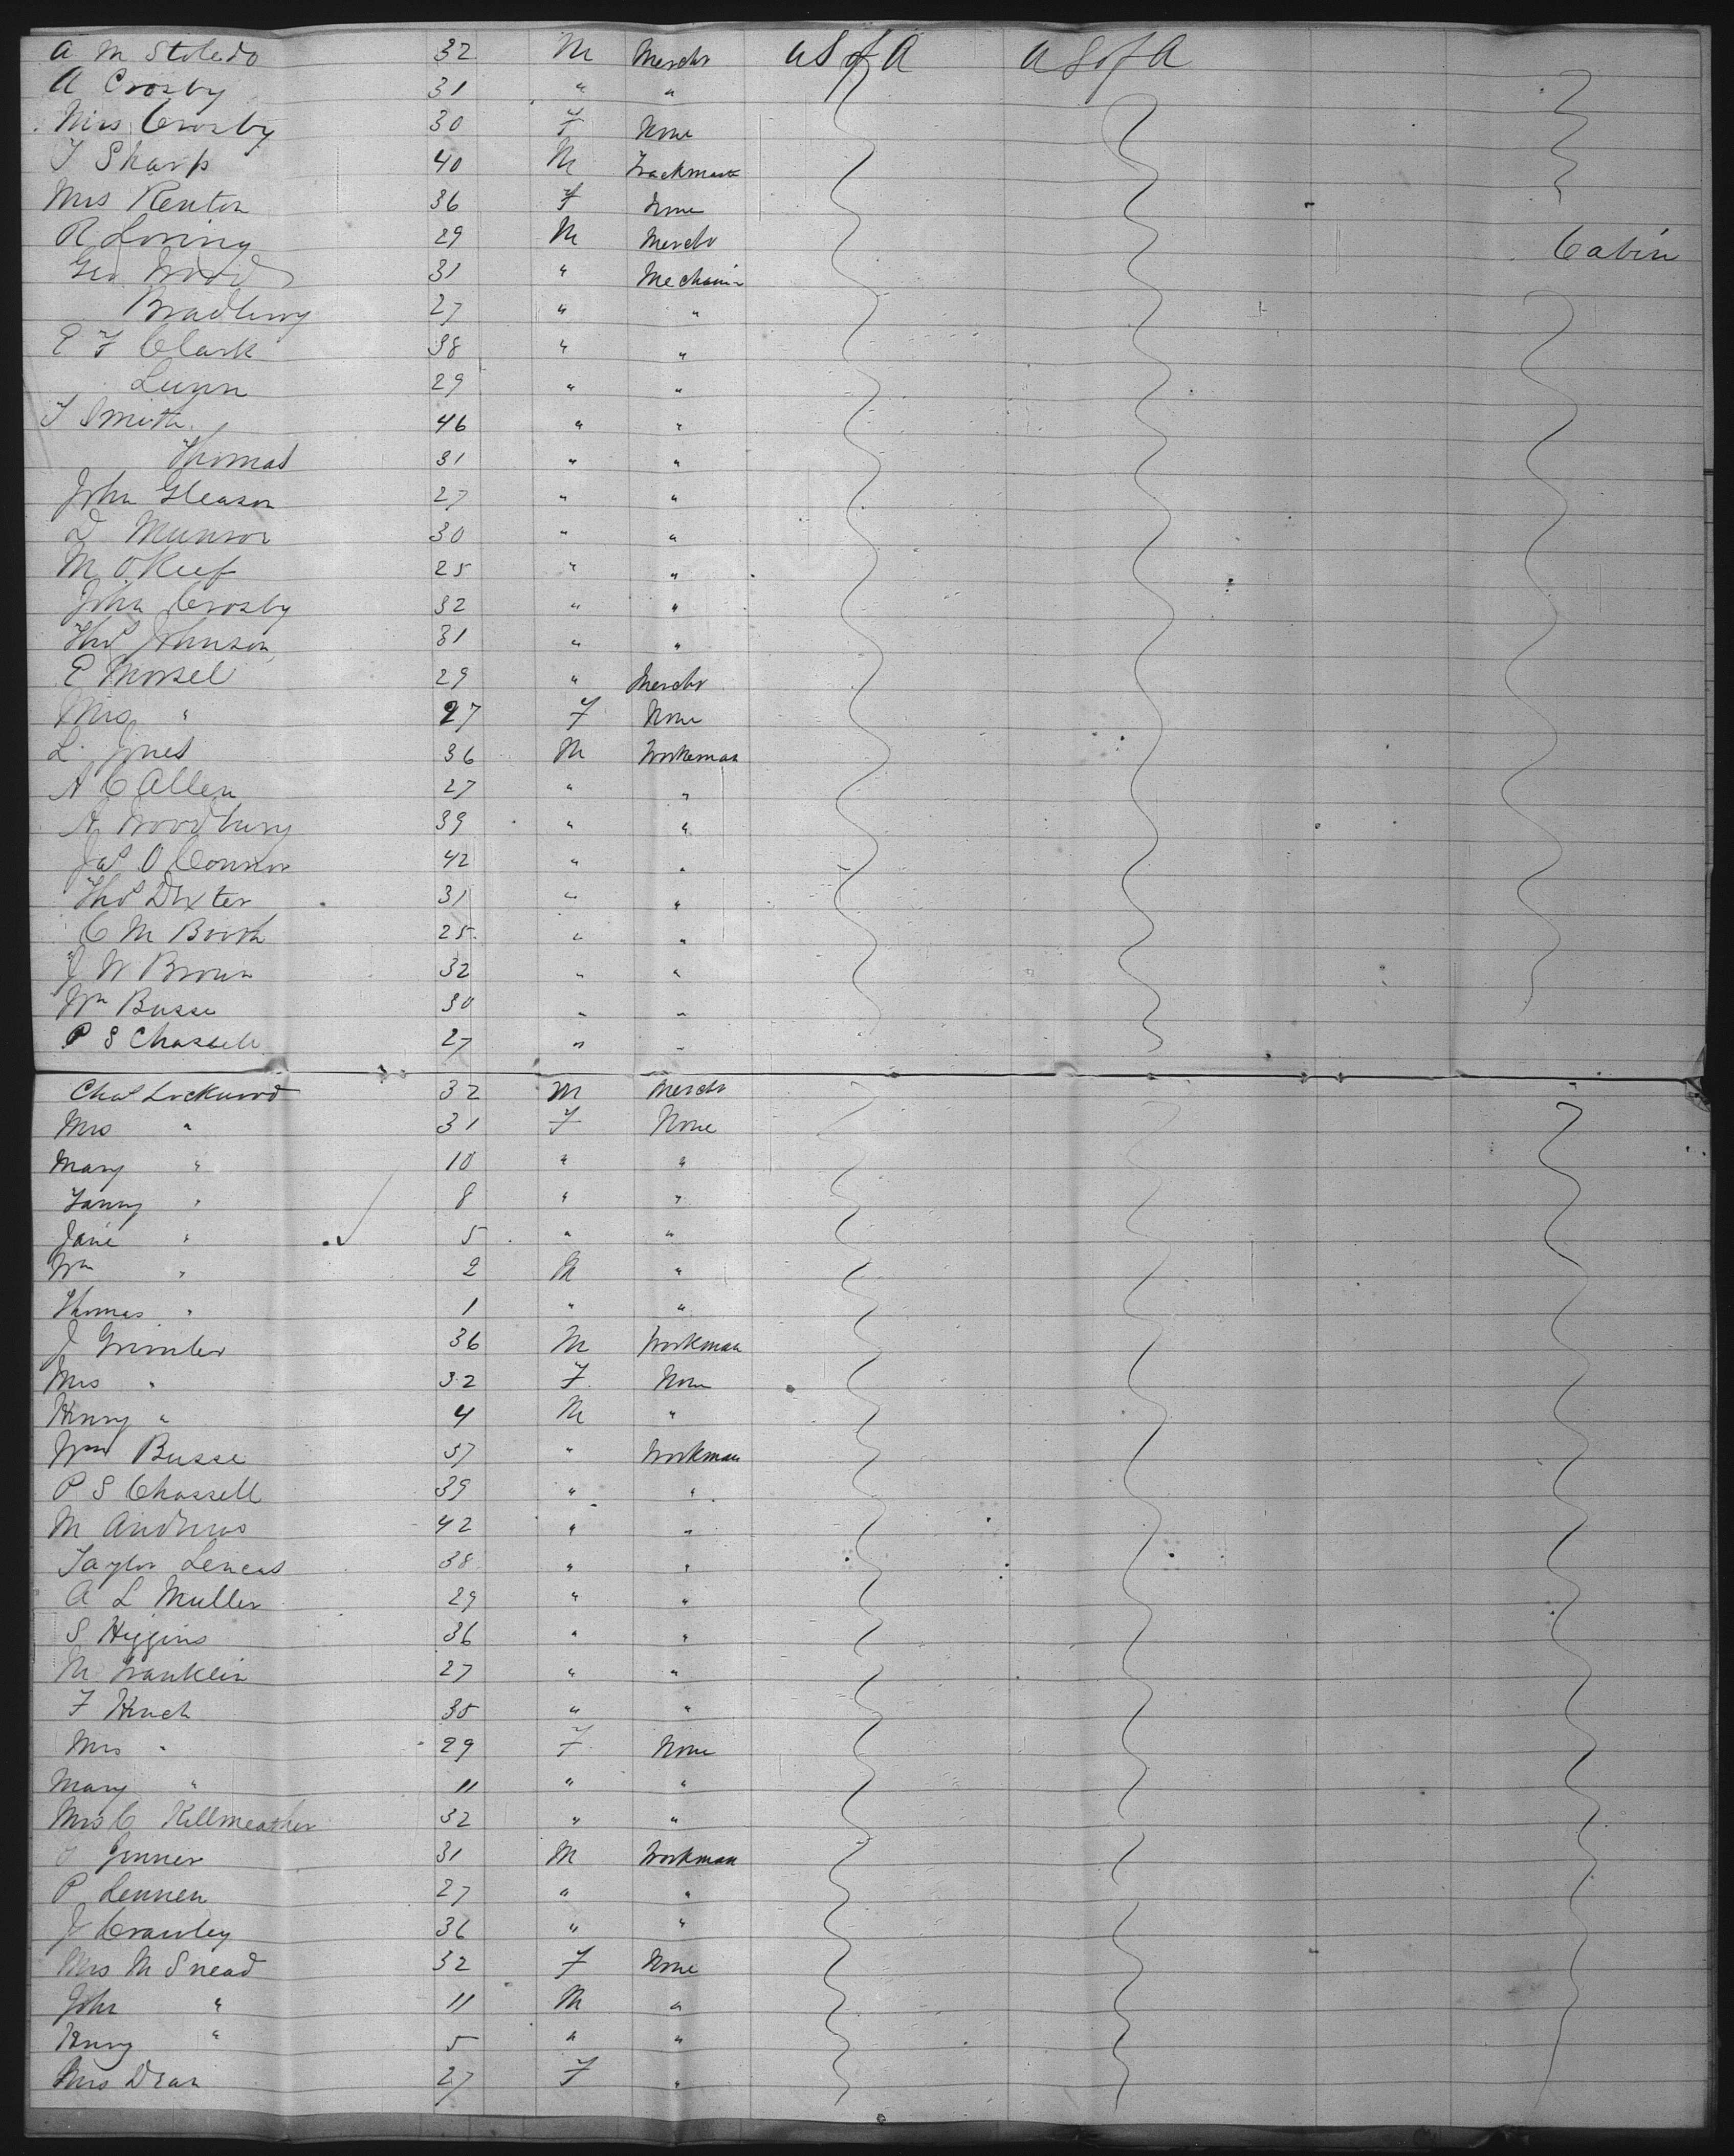 A M Stoledo 32 M Mercht U S of A U S of A
A Crosby 31 " "
Mrs Crosby 30 F None
T Sharp 40 M Trackman
Mrs Renton 36 F None
R Loring 29 M Mercht Cabin
Geo Wood 31 " Mechanic
Bradbury 27 " "
E F Clark 38 " "
Lunn 29 " "
T Smith 46 " "
Thomas 31 " "
John Gleason 27 " "
D Munson 30 " "
M O'Keef 25 " "
John Crosby 32 " "
Thos Johnson 31 " "
E Morsel 29 " Mercht
Mrs " 27 F None
L Jones 36 M Workman
A C Allen 27 " "
A Woodbury 39 " "
Jas O Connor 42 " "
Thos Dexter 31 " "
C M Booth 25 " "
J W Brown 32 " "
Wm Busse 30 " "
P S Chassell 27 " "
Chas Lockwood 32 M Mercht
Mrs " 31 F None
Mary " 10 " "
Fanny " 8 " "
Jane " 5 " "
Wm " 2 M "
Thomas " 1 " "
J 36 M Workman
Mrs " 32 F None
Henry " 4 M "
Wm Busse 37 " Workman
P S Chassell 39 " "
M Andrews 42 " "
Taylor 38 " "
A L Muller 29 " "
S Higgins 36 " "
M Franklin 27 " "
F 35 " "
Mrs " 29 F None
Mary " 11 " "
Mrs C Killmeather 32 " "
Jenner 31 M Workman
P Lennen 27 " "
J Crawley 36 " "
Mrs M Snead 32 F None
John " 11 M "
Henry " 5 " "
Mrs Dean 27 F "